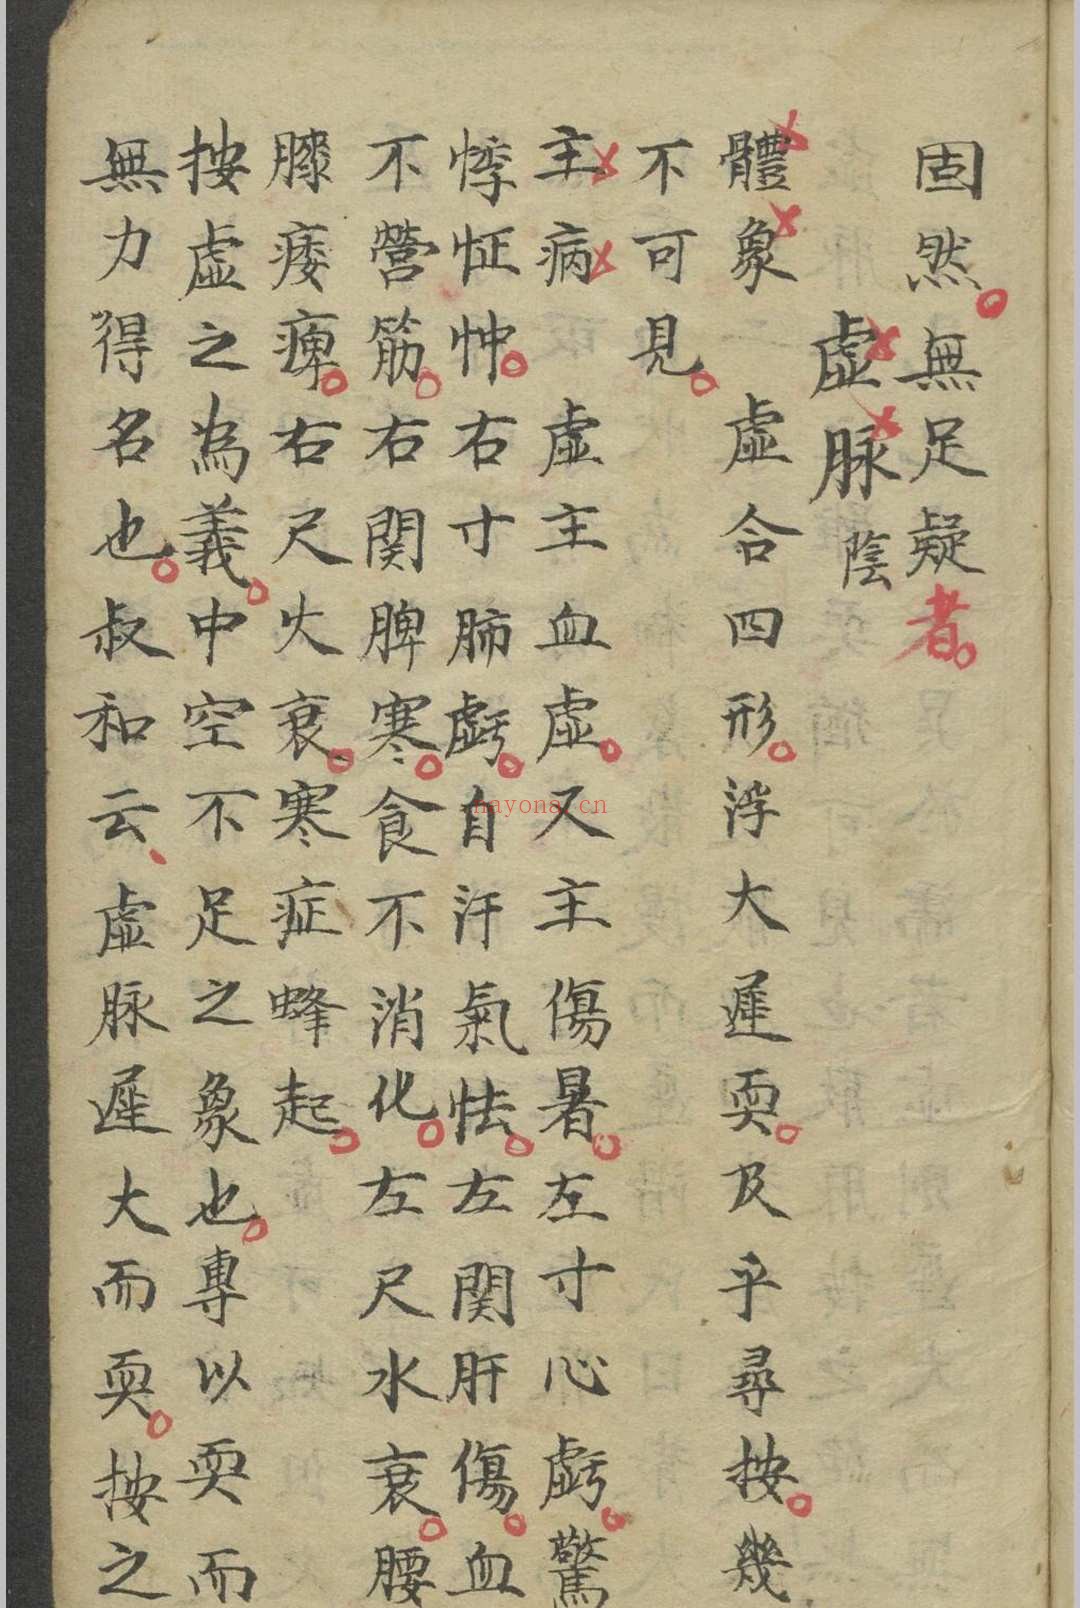 固然無足疑者
虛脉陰
體象 虛合四形浮大遲耎及乎尋按幾
不可見
主病 虛主血虛又主傷暑左寸心虧驚
悸怔忡右寸肺虧自汗氣怯左関肝傷血
不營筋右関脾寒食不消化左尺水衰腰
膝痿痺右尺火衰寒症蜂起
按虛之為義中空不足之象也專以耎而
無力得名也叔和云虛脉遲大而耎按之
nayona.cn